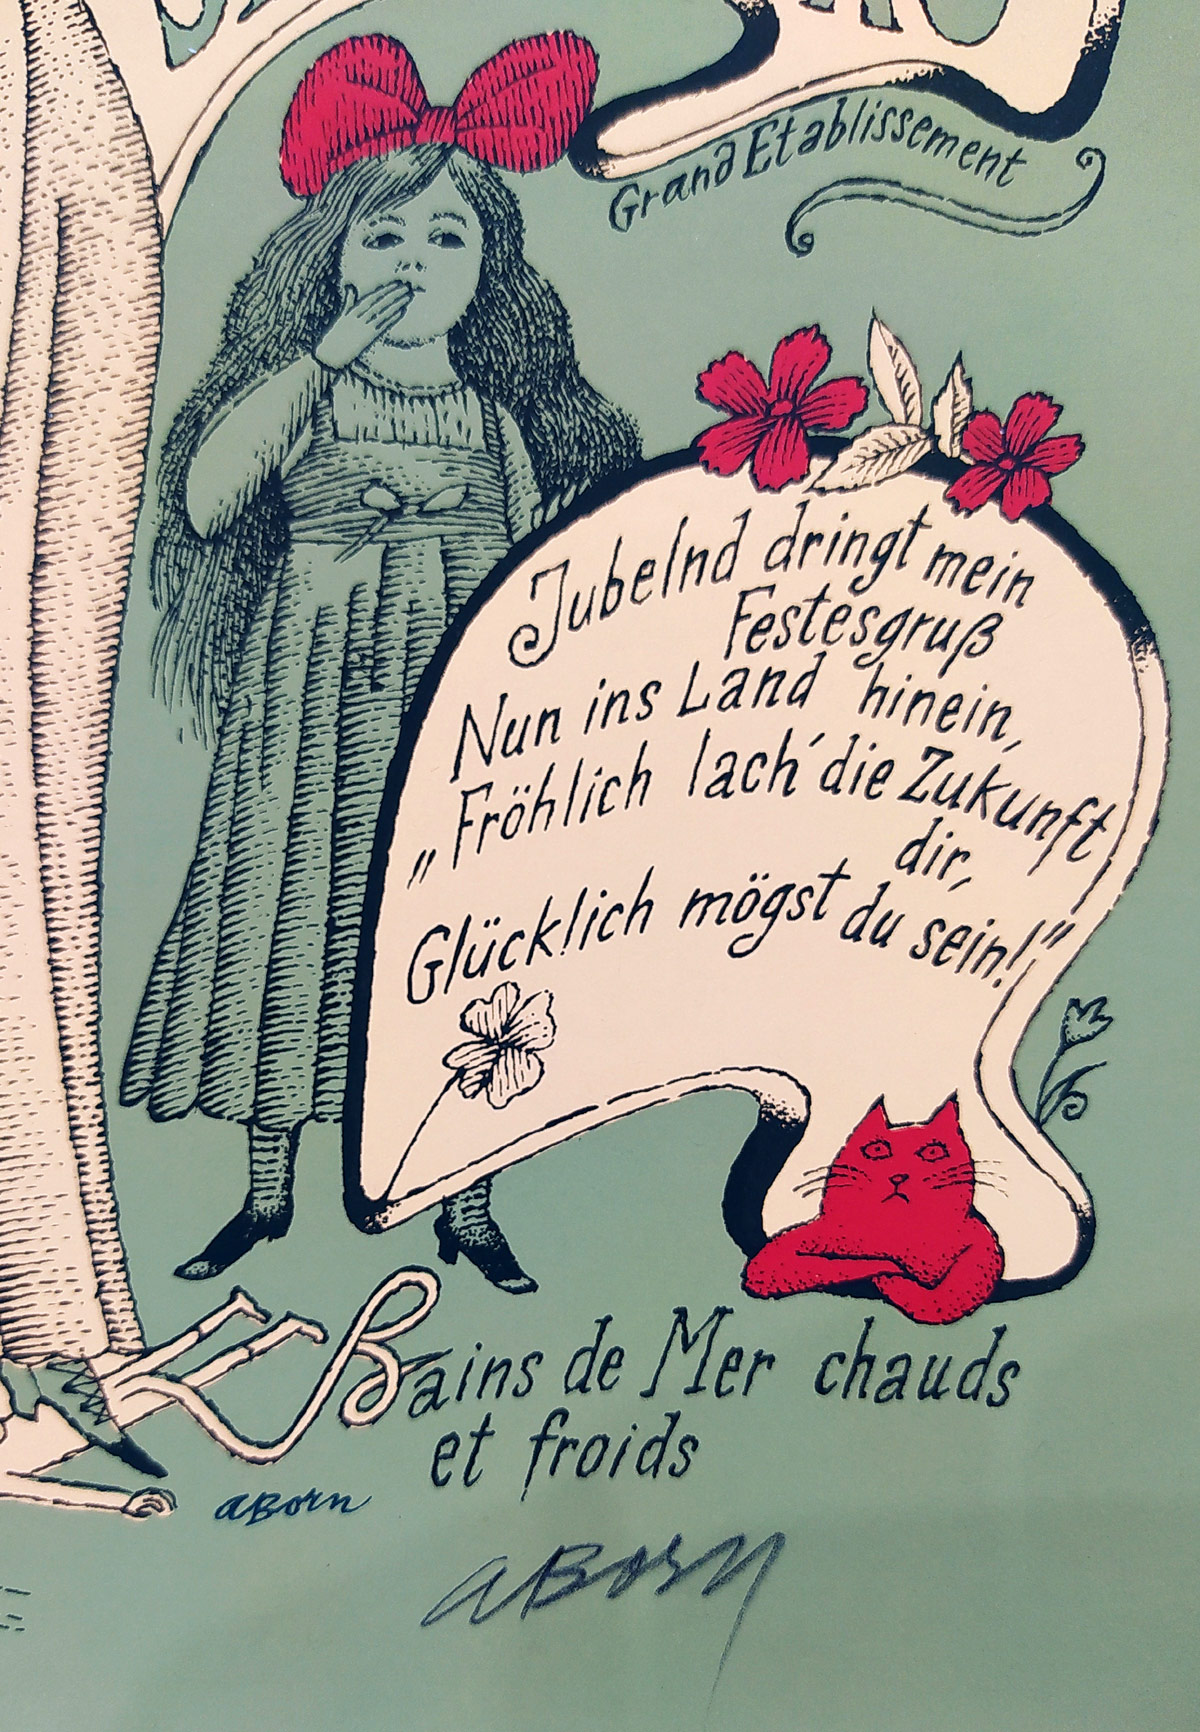 Grand Etablissement
Jubelnd dringt mein
Festesgruß
Nun ins Land hinein,
„Fröhlich lach´ die Zukunft
dir,
Glücklich mögst du sein!“
Bains de Mer chauds
et froids
aBorn
aBorn